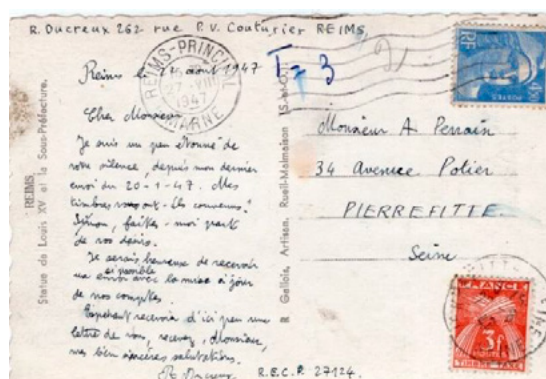 R. Ducreux 262 rue P.V. Couturier REIMS
REIMS-PRINCIPAL
27-VIII
1947
MARNE
T = 3
RF
4F50
POSTES
Reims le 27 août 1947
Cher Monsieur
Je suis un peu étonné de
votre silence, depuis mon dernier
envoi du 20-1-47. Mes
timbres vous ont-ils convenus?
Sinon, faites-moi part
de vos désirs.
Je serais heureux de recevoir
un envoi si possible avec la mise à jour
de nos comptes.
Espérant recevoir d'ici peu une
lettre de vous, recevez, Monsieur,
mes bien sincères salutations.
R. Ducreux
R.E.C.P. 27124.
REIMS
Statue de Louis XV et la Sous-Préfecture.
R Gallois, Artisan, Rueil-Malmaison (S.-&-O.)
Monsieur A Perrain
34 Avenue Potier
PIERREFITTE
Seine
FRANCE
3F
POSTES
TIMBRE TAXE